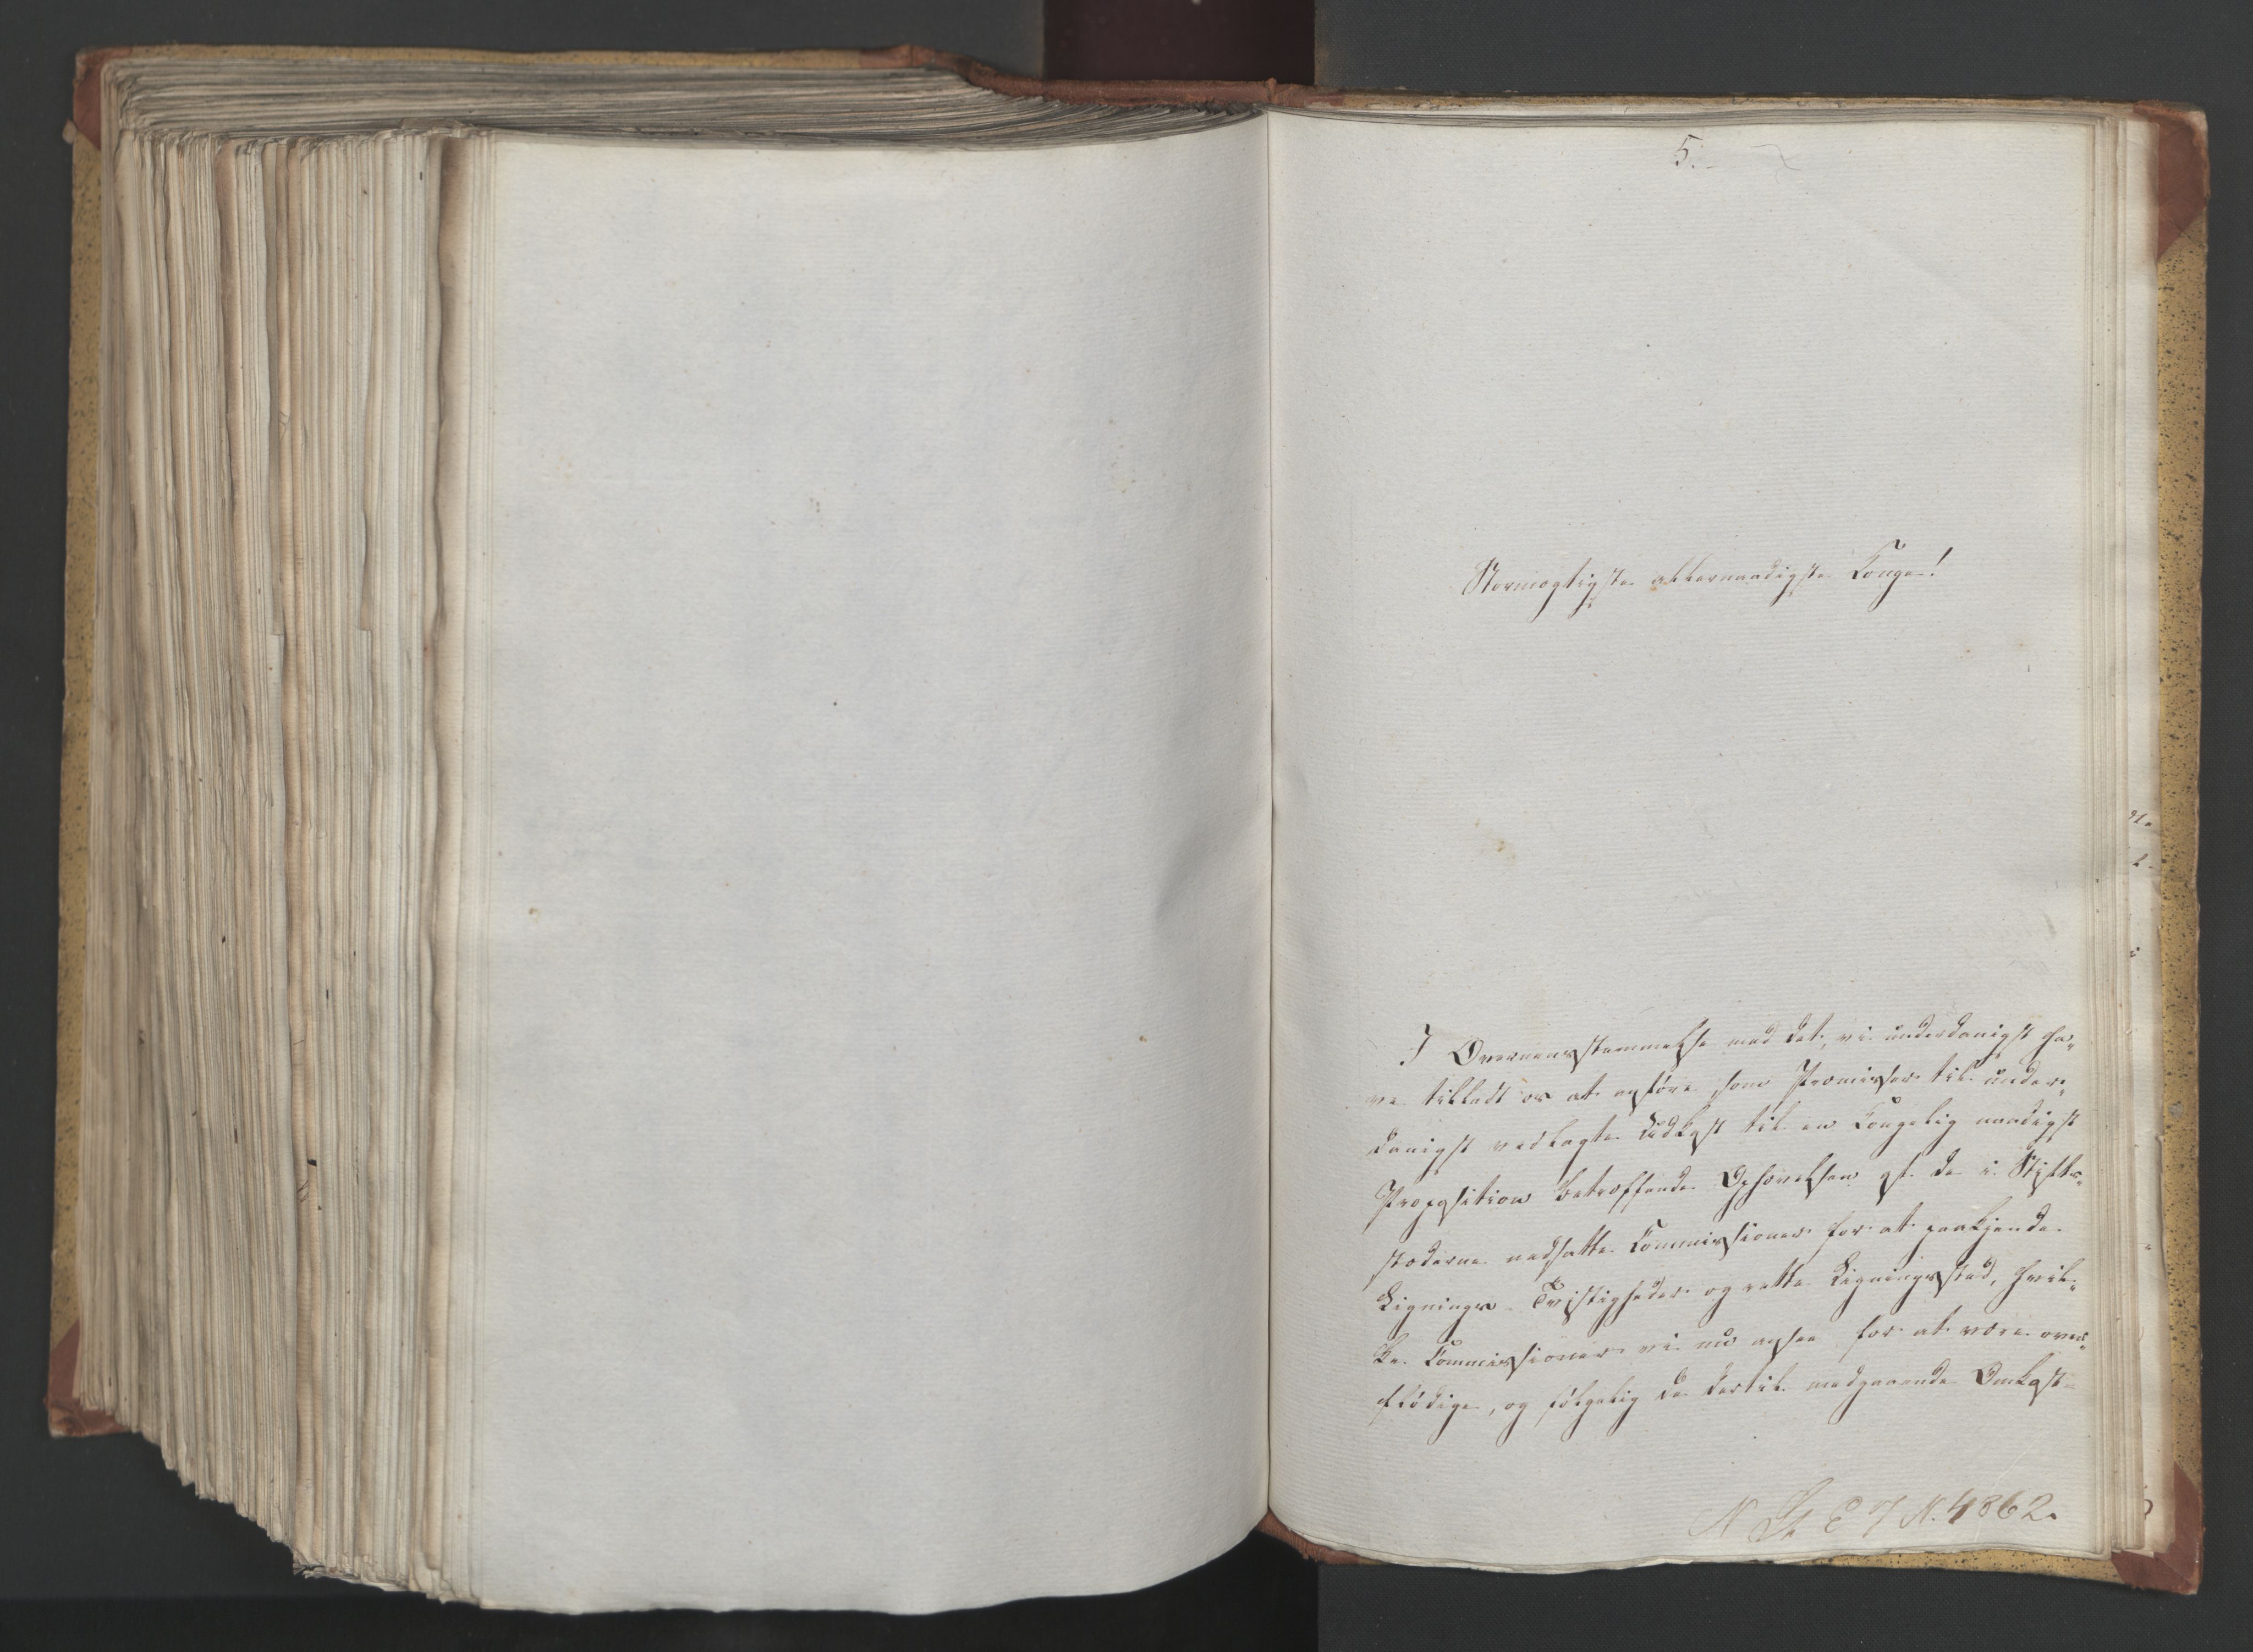 5.
Stormægtigste allernaadigste Konge!
I Overensstemmelse med det, vi underdanigst ha„
ve tilladt os at anføre som Præmisser til under„
danigst vedlagte Udkast til en Kongelig naadigst
Proposition betreffende Ophævelsen af de i Stifts„
stæderne nedsatte Commissioner for at paakjende
Ligningers Tvistigheder og rette Ligningssted, hvil„
ke Commissioner vi nu ansee for at være over„
flødige, og følgelig de dertil medgaaende Omkost„
N. 4862.